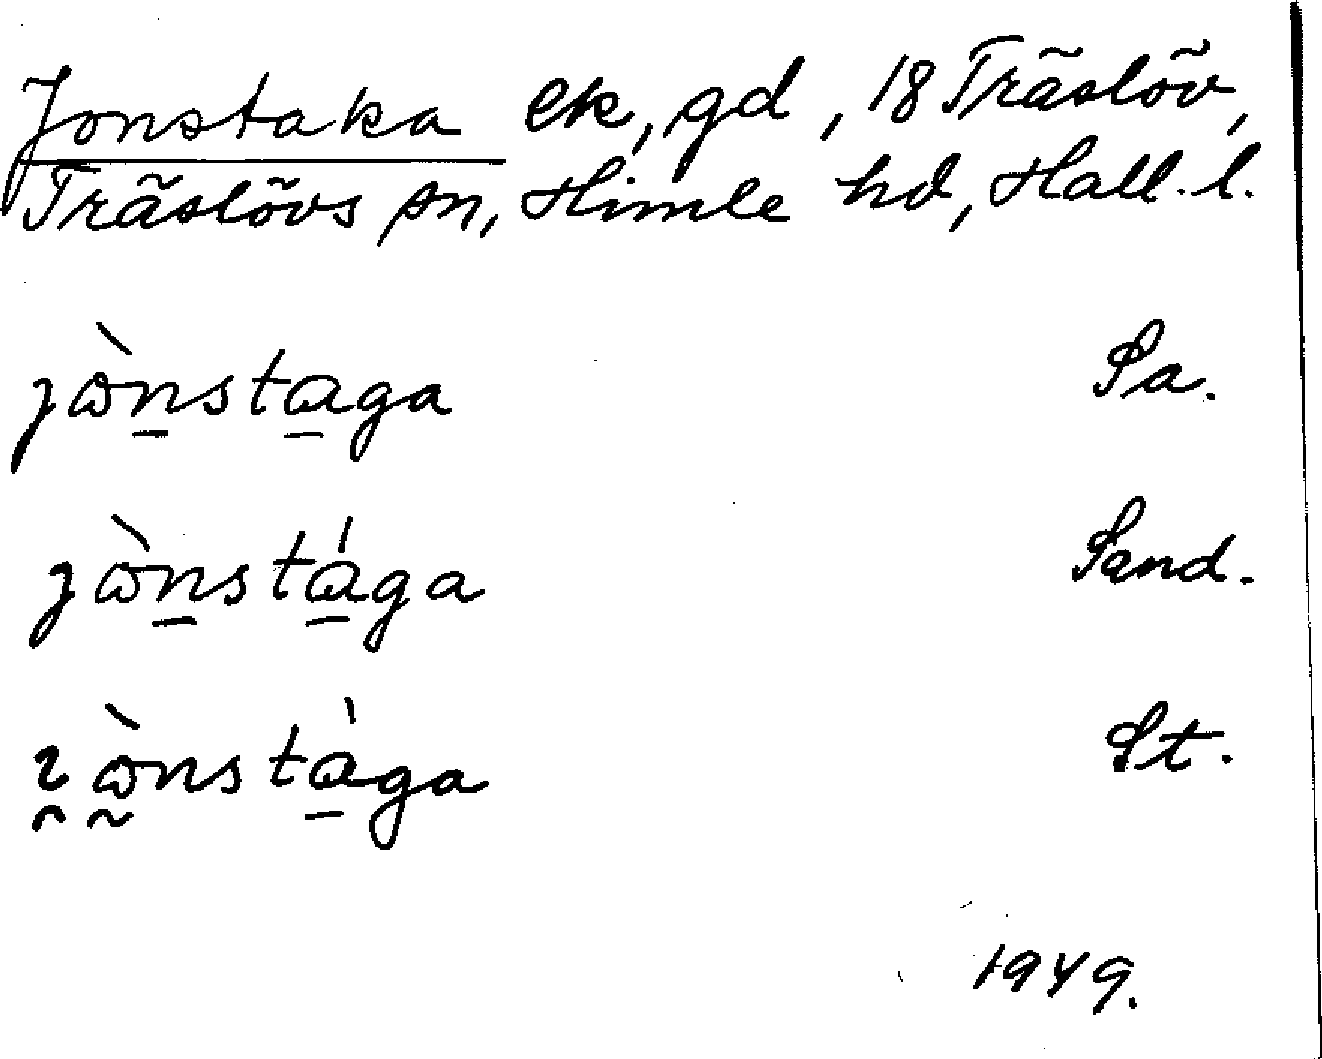 Jonstaka ek, gd, 18 Träslöv,
Träslövs sn, Himle hd, Hall. l.
jὼn̲sta̲ga Sa.
jὼn̲stá̲ga Sand.
ɿ̯ὼ̰nstà̲ga St.
1949.